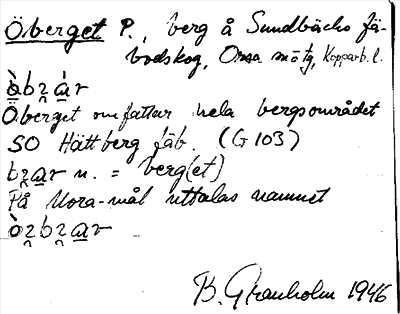 Öberget P., berg å Sundbäcks fä-
bodskog, Orsa mötg, Kopparb. l.
Öberget omfattar hela bergsområdet
SO Hättberg fäb. (G 103)
n. = berg(et)
På Mora-mål uttalas namnet
B. Granholm 1946